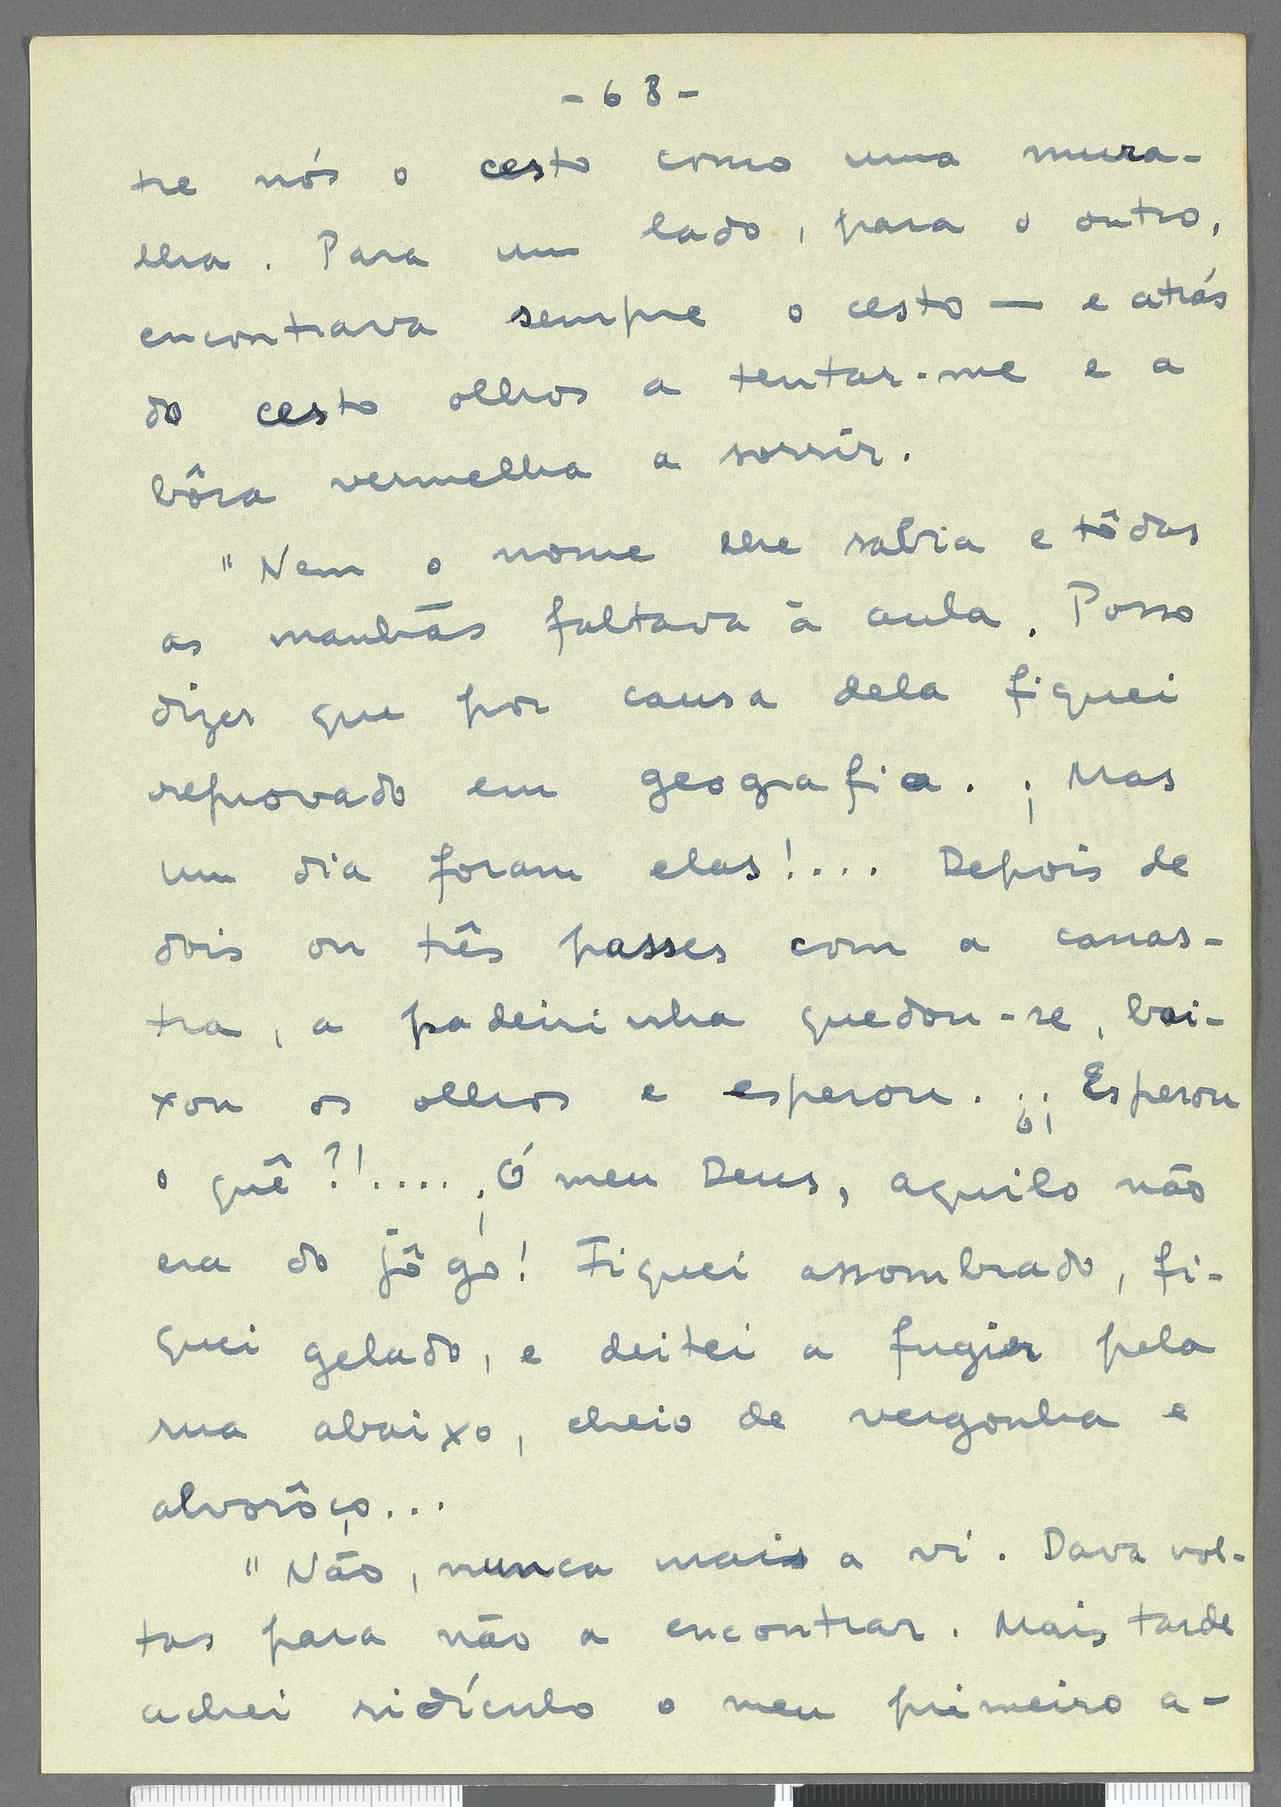 - 68 -
tre nós o cesto como uma mura-
lha. Para um lado, para o outro,
encontrava sempre o cesto — e atrás
do cesto olhos a tentar-me e a
bôca vermelha a sorrir.
"Nem o nome lhe sabia e tôdas
as manhãs faltava à aula. Posso
dizer que por causa dela fiquei
reprovado em geografia.. Mas
um dia foram elas!... Depois de
dois ou três passes com a canas-
tra, a padeirinha quedou-se, bai-
xou os olhos e esperou... Esperou
o quê?!.... Ó meu Deus, aquilo não
era do jôgo! Fiquei assombrado, fi-
quei gelado, e deitei a fugir pela
rua abaixo, cheio de vergonha e
alvorôço...
"Não, nunca mais a vi. Dava vol-
tas para não a encontrar. Mais tarde
achei ridículo o meu primeiro a-